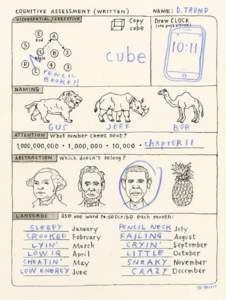 COGNITIVE ASSESSMENT (WRITTEN)
NAME: D. TRUMP
VISUOSPATIAL/EXECUTIVE
Copy cube
Draw CLOCK
End
A
5
B
2
1
D
4
3
C
PENCIL BROKE!!
cube
10:11
NAMING
GUS
JEFF
BOB
ATTENTION What number comes next?
1,000,000,000 • 1,000,000 • 10,000 • chapter 11
ABSTRACTION Which doesn't belong?
LANGUAGE Use one word to describe each month:
SLEEPY January
CROOKED February
LYIN' March
LOW IQ April
CHEATIN' May
LOW ENERGY June
PENCIL NECK July
FAILING August
CRYIN' September
LITTLE October
SNEAKY November
CRAZY December